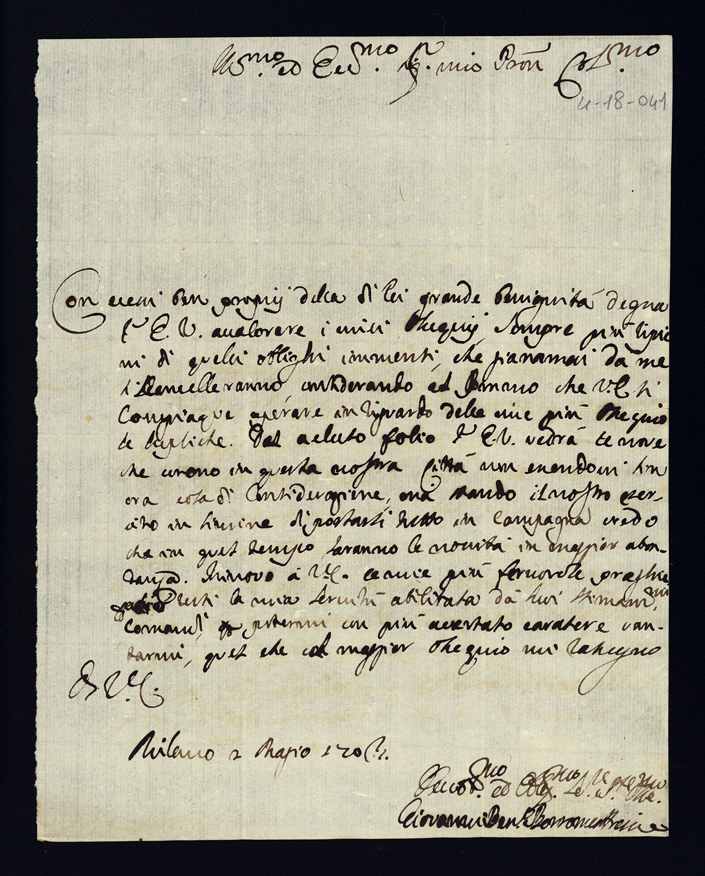 Ill.mo ed Ecc.mo Sig.r mio Pron Col.mo
4-18-041
Con eccessi ben proprij della di lei grande benignità degna
l'E. V. avalorare i miei ossequij sempre più
mi di quelli oblighi immensi, che giamai da me
si scancelleranno considerando al sommo che V.E. si
Compiaque operare in riguardo delle mie più osequio
se supliche. Dal acluso folio l'E.V. vedrà le nove
che corono in questa nostra Città non essendovi sin
ora cosa di Considerazione, mà stando il nostro eser-
cito in di portarsi tutto in Campagna credo
che in quel tempo saranno le novità in maggior abon-
danza. Rinovo à V.E. le mie più fervorose preghie
la mia servitù abilitata da suoi stimatis.mi
Comandi per potermi con più acertato caratere van-
tarmi, quel che col maggior osequio mi rasegno
Di V.E.
Milano 2 Magio
Giovanni